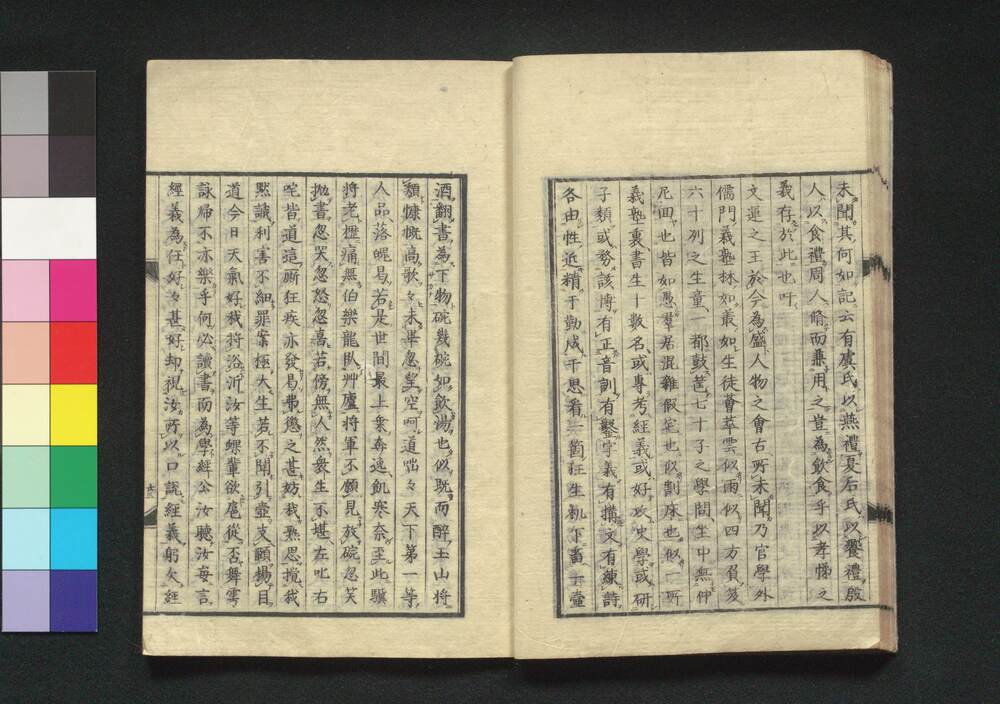 未聞其何如記云有虞氏以燕禮夏后氏以饗禮殷
人以食禮周人脩而兼用之豈為飲食乎以孝悌之
義存於此也吁
文運之王於今為盛人物之會古所未聞乃官學外
儒門義塾林如叢如生徒薈萃雲似雨似四方負笈
六十列之生童一都鼓篋七十子之學問生中無仲
尼回也皆如愚羣居混雜假宅也似割床也似一所
義塾裏書生十數名或專考經義或好攻史學或研
子類或務該博有正音訓有鑿字義有搆文有練詩
各由性近精于勤成于思看一箇狂生机下蓄一壺
酒翻書為下物碗幾碗如飲湯也似既而醉玉山將
頽慷慨高歌々未畢忽望空呵道咄々天下第一等
人品落魄易若是世間最上乗奔逸飢寒奈至此驥
將老櫪痛無伯樂龍臥艸廬將軍不顧見放碗忽笑
拋書忽哭忽怒忽喜若傍無人然衆生不堪左叱右
咤皆道這廝狂疾亦發易弗憊之甚妨我熟思攪我
黙誠利害不細罪案極大生若不聞引壺支頤揚目
道今日天氣好哉將浴沂汝等螺輩欲扈從否舞雩
詠帰不亦樂乎何必讀書而為學經公汝聽汝每言
經義為任好々甚好却視汝所以口説經義躬欠經